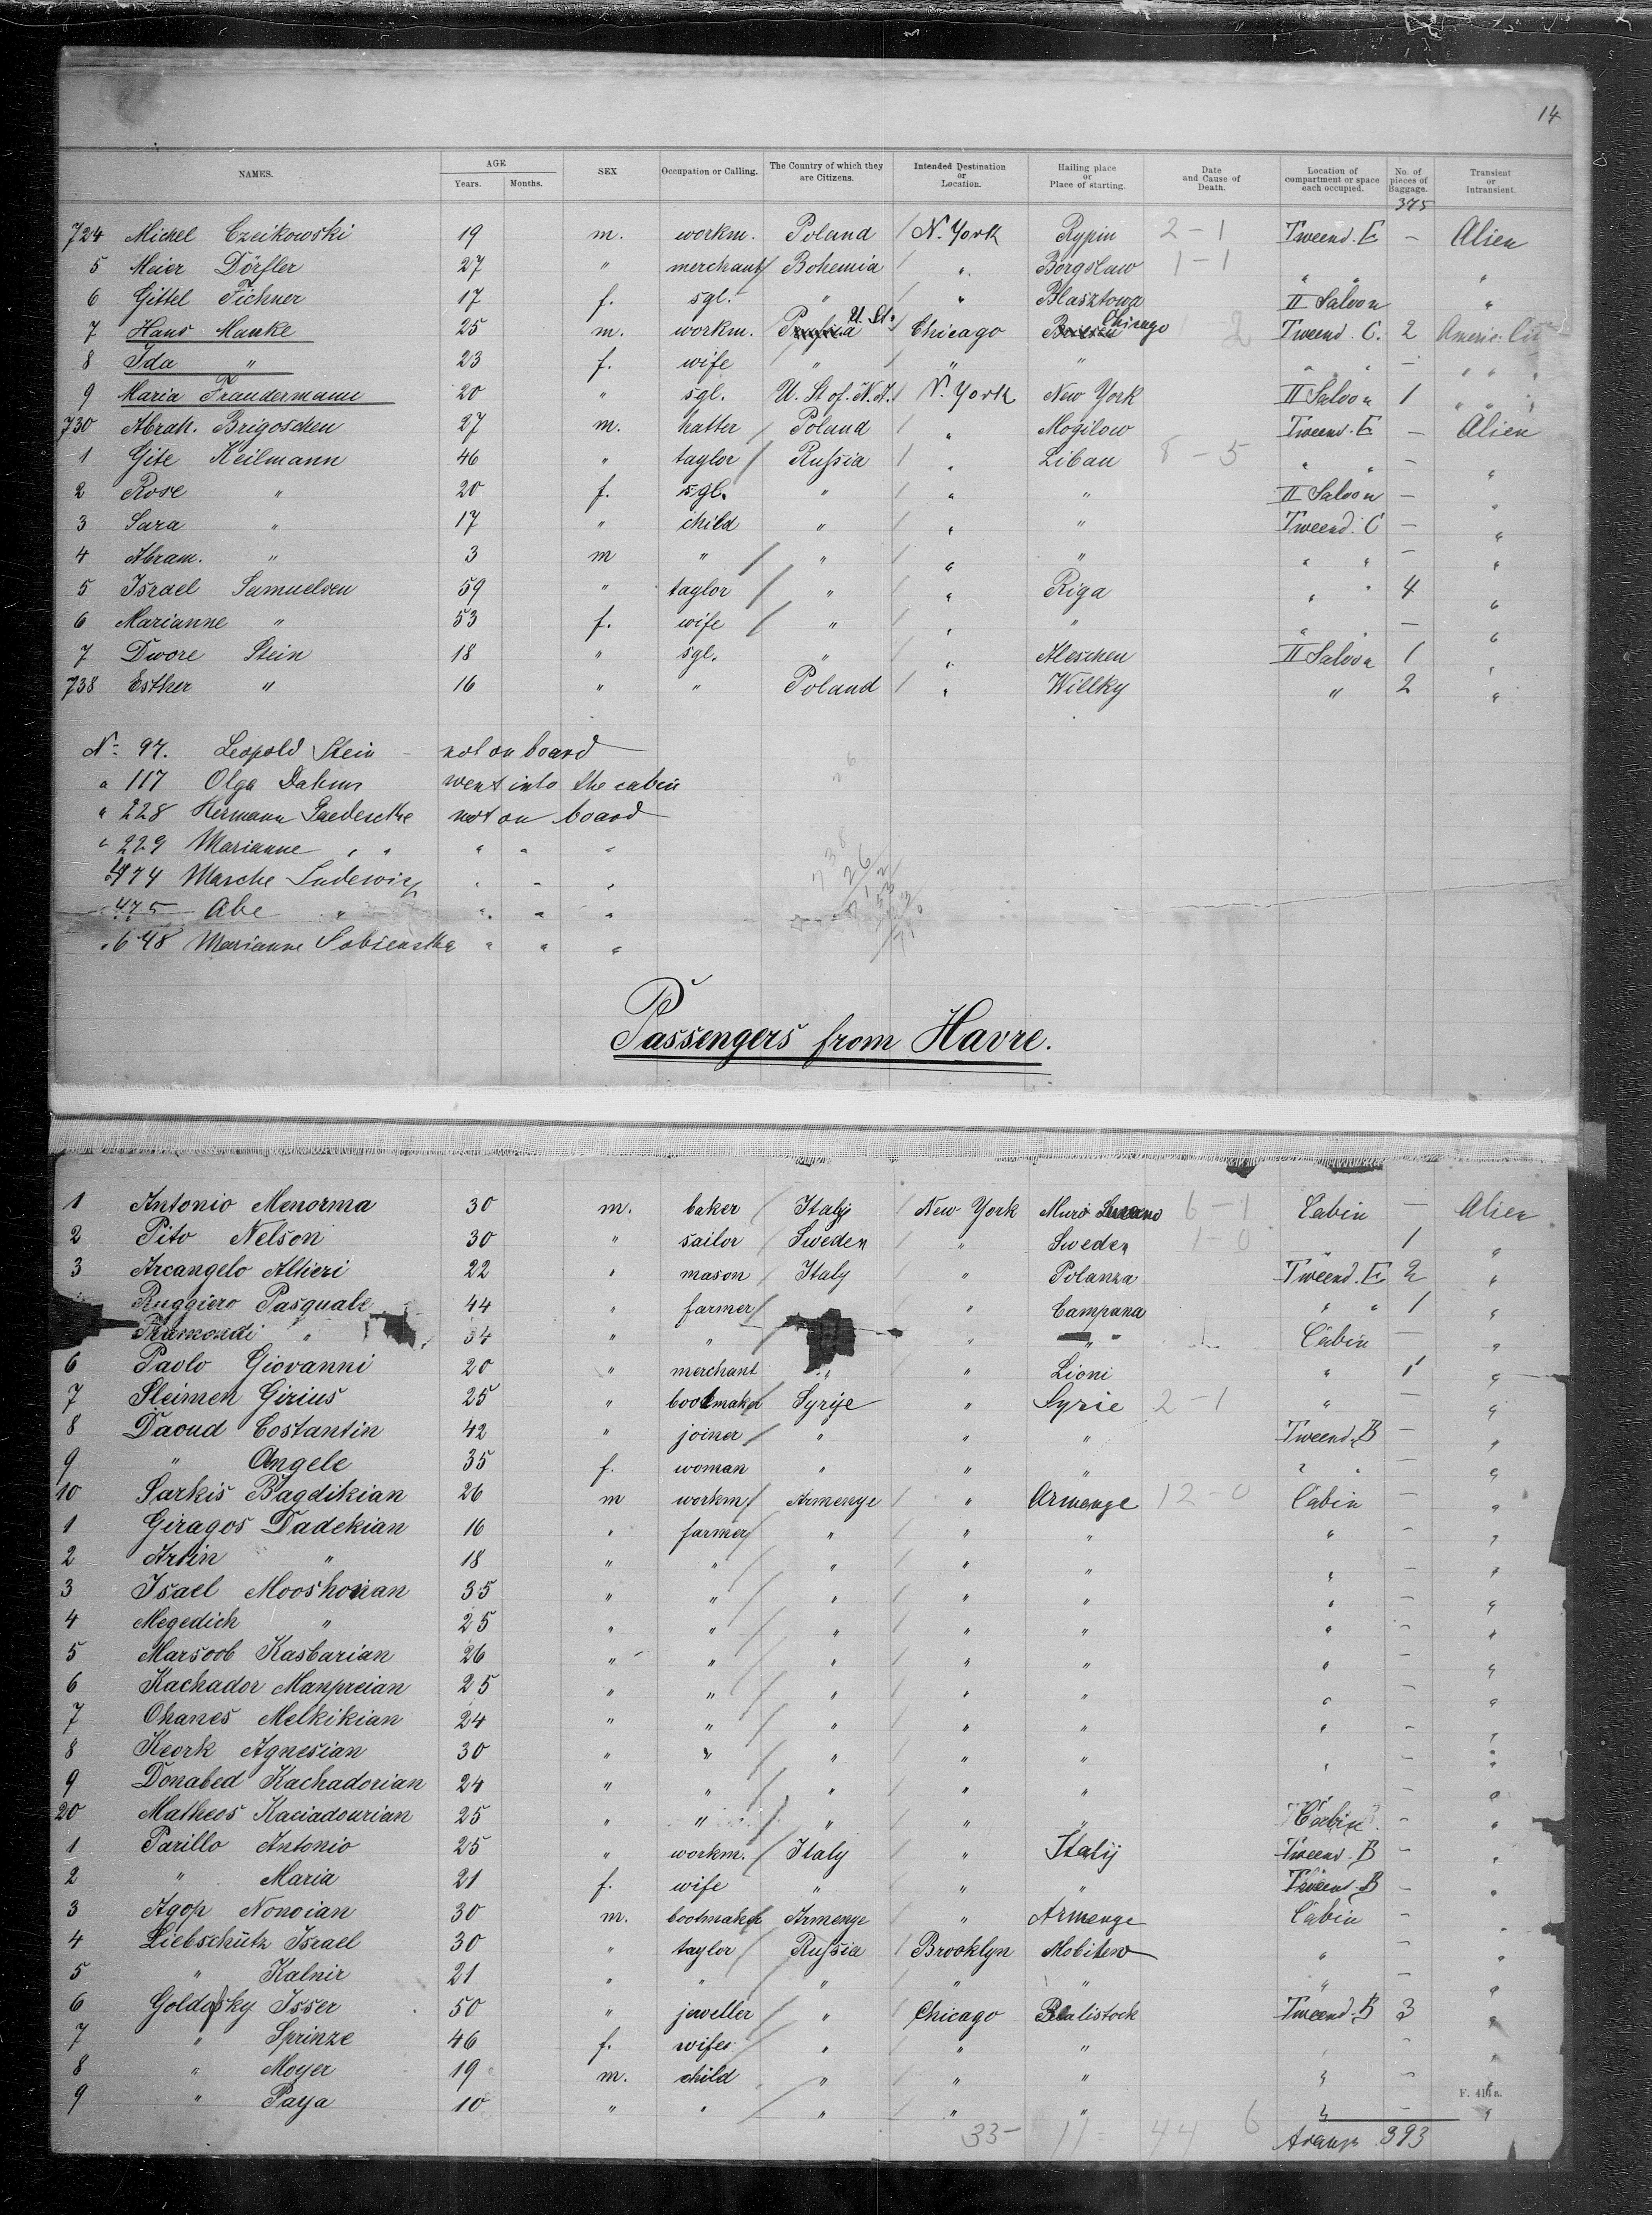 14
NAMES. AGE Years. Months. SEX Occupation or Calling. The Country of which they are Citizens. Intended Destination or Location. Hailing place or Place of starting. Date and Cause of Death. Location of compartment or space each occupied. No. of pieces of Baggage. Transient or Intransient.
375
724 Michel Czeikowski 19 m. workm. Poland / N. York Rypin 2-1 Tweend. E - Alien
5 Meier Dörfler 27 " merchant / Bohemia / " Borgslaw 1-1 " " "
6 Gittel Fichner 17 f. sgl. " / " Blasztowa II Saloon "
7 Hans Manke 25 m. workm. U. St. / Chicago Chicago 2 Tweend. C. 2 Americ. Cit
8 Ida " 23 f. wife " / " " " " - " "
9 Maria Traudermann 20 " sgl. U. St of. N. A. / N. York New York II Saloon 1 " "
730 Abrah. Brigoschen 27 m. hatter / Poland / " Mogilow Tweend. E - Alien
1 Gite Keilmann 46 " taylor / Russia / " Liban 8-5 " " - "
2 Rose " 20 f. sgl. " / " " II Saloon - "
3 Sara " 17 " child " / " " Tweend. C - "
4 Abram. " 3 m " / " / " " " " - "
5 Israel Samuelsen 59 " taylor / " / " Riga " " 4 "
6 Marianne " 53 f. wife / " / " " " " - "
7 Dwore Stein 18 " sgl. " / " Aleschen II Saloon 1 "
738 Esther " 16 " " Poland / " Willky " 2 "
No. 97. Leopold Stein - not on board
" 117 Olga Dahms went into the cabin
" 228 Hermann not on board
" 229 Marianne " " " " "
474 Marche Ludewig " " "
475 Abe " " " "
" 648 Marianne Sobienska " " "
Passengers from Havre.
1 Antonio Menorma 30 m. baker / Italy / New York Muro 6-1 Cabin - Alien
2 Pito Nelson 30 " sailor / Sweden / " Sweden 1-0 " 1 "
3 Arcangelo Altieri 22 " mason / Italy " Polanza Tweend. E 2 "
Ruggiero Pasquale 44 " farmer / " Campana " " 1 "
" 34 " " / " " Cabin - "
6 Paolo Giovanni 20 " merchant " " Lioni " 1 "
7 Sleimen Girius 25 " bootmaker Syrije " Syrie 2-1 " - "
8 Daoud Costantin 42 " joiner / " " " Tweend. B - "
9 " Angele 35 f. woman " " " " " - "
10 Sarkis Bagdikian 26 m workm / Armenye / " Armenye 12-0 Cabin - "
1 Giragos Dadekian 16 " farmer / " / " " " - "
2 Artin " 18 " " / " / " " - "
3 Isael Mooshonian 35 " " / " / " " " - "
4 Megedich " 25 " " / " / " " " - "
5 Marsoob Kasbarian 26 " " / " / " " " - "
6 Kachador Manpreian 25 " " / " / " " " - "
7 Ohanes Melkikian 24 " " / " / " " " - "
8 Keork Agnesian 30 " " / " / " " " - "
9 Donabed Kachadorian 24 " " / " / " " " - "
20 Matheos Kaciadourian 25 " " / " / " " Cabin - "
1 Parillo Antonio 25 " workm. / Italy / " Italij Tweend. B - "
2 " Maria 21 f. wife " " " Tweend. B - "
3 Agop Nonoian 30 m. bootmaker Armenye " Armenye Cabin - "
4 Liebschütz Israel 30 " taylor / Russia / Brooklyn Mobilew " - "
5 " Kalnir 21 " " / " / " " " - "
6 Goldofsky Isser 50 " jeweller / " / Chicago Bialistock Tweend. B 3 "
7 " Sprinze 46 f. wife / " / " " " - "
8 " Moyer 19 m. child " " " " - "
9 " Paya 10 " " / " " " " - "
F. 411a.
33- 11= 44 6 393